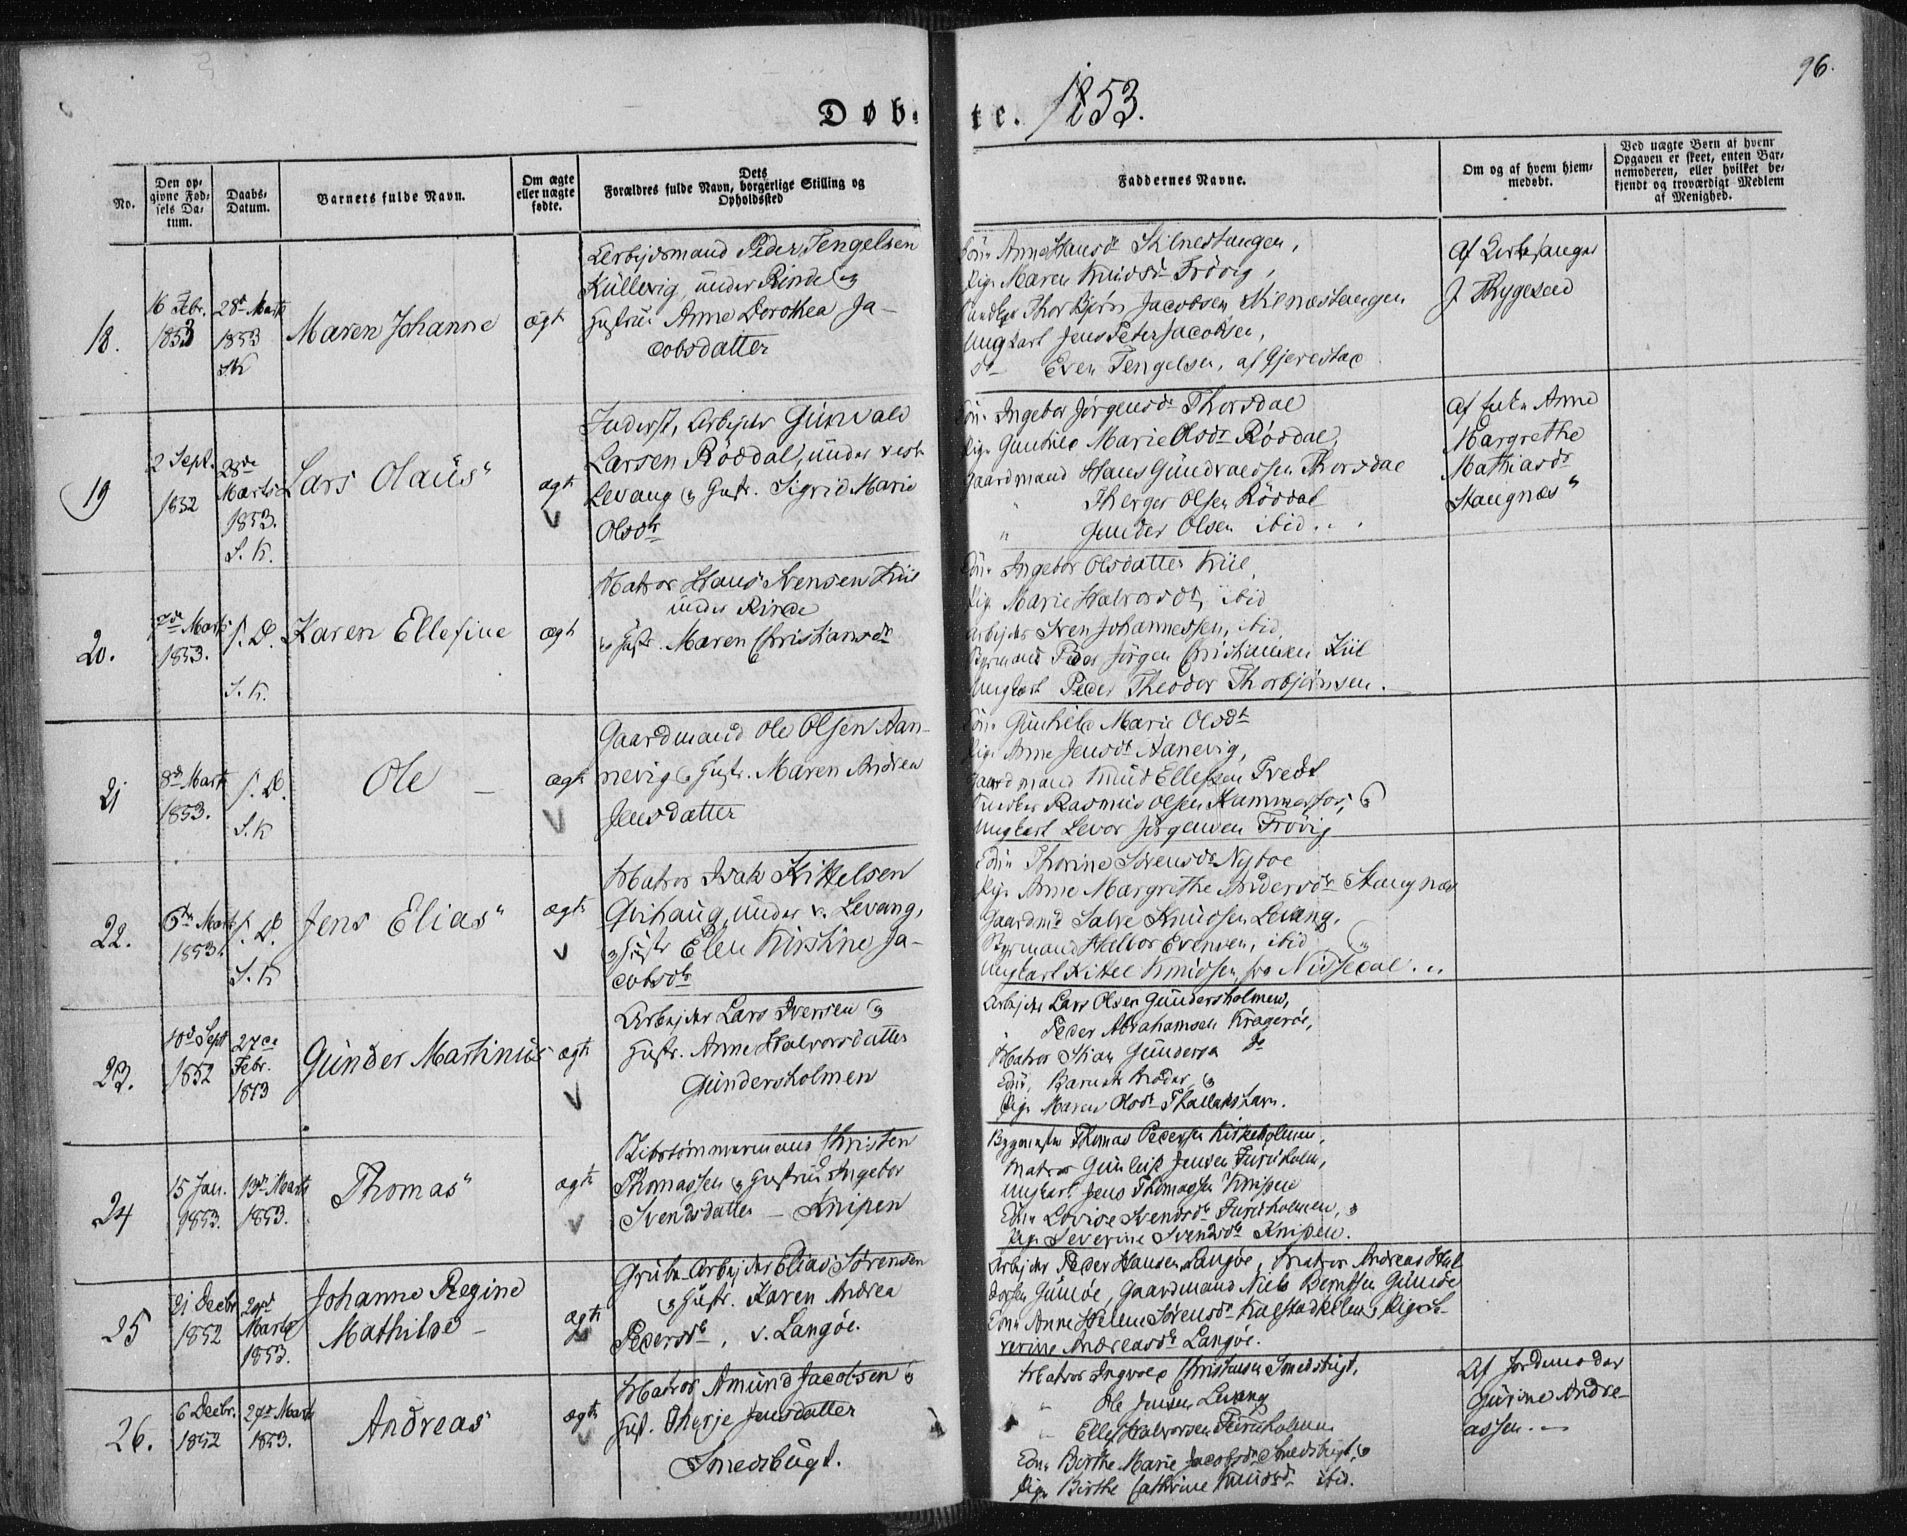 96.
Døb- te. 1853.
No.
Den opgivne Fødsels Datum.
Daabs-Datum.
Barnets fulde Navn.
Om ægte eller uægte fødte.
Dets Forældres fulde Navn, borgerlige Stilling og Opholdssted
Faddernes Navne.
Om og af hvem hjemmedøbt.
Ved uægte Børn af hvem Opgaven er skeet, enten Barnemoderen, eller hvilket bekjendt og troværdigt Medlem af Menighed.
18.
16 Febr.
1853
28de Marts
1853
S.K
Maren Johanne
ægte
Arbejdsmand Peder Tengelsen
Küllevig, under Rinde og
Hustrue Anne Dorothea Ja-
cobsdatter
Kone Anne Hansdr Skilnestangen,
Pige Maren Knudsdr Frövig,
Thorbjörn Jacobsen Skilnæstangen
Ungkarl Jens Peter Jacobsen,
do Even Tengelsen, af Gjerestad
Af Kirkesanger
J Thygesen
19
2 Sept.
1852
28de
Marts
1853.
S.K.
Lars Olaus"
ægte
Inderst, Arbejder Gunvald
Larsen Röddal, under vestr
Levang og Hustr. Sigrid Marie
Olsdtr
Kone Ingebor Jörgensdr Thorsdal
Pige Gunhild Marie Olsdr Röddal,
Gaardmand Hans Gundvaldsen Thorsdal
" Therger Olsen Röddal
" Gunder Olsen ibid...
af Enke Anne
Margrethe
Mathiasdr
Stangnæs"
20.
7de Marts
1853.
s. D.
S.K.
Karen Ellefine
ægte
Matros Hans Svensen Kiil
under Rinde
og Hustr. Maren Christiansdr
Kone Ingebor Olsdatter Kiil,
Pige Marie Halvorsdr, ibid
Arbejder Sven Johannessen, ibid,
Styrmand Peder Jörgen Christiansen Kiil
Ungkarl Peder Theodor Thorbjörnsen.
21
8de Marts
1853.
s. D.
S.K
Ole
ægte
Gaardmand Ole Olsen Aan-
nevig og Hustr. Maren Andrea
Jensdatter
Kone Gunhild Marie Olsdr
Pige Anne Jensdr Aanevig,
Gaardmand Knud Ellefsen Tvedt
Rasmus Olsen Hammerfos, og
Ungkarl Levor Jörgensen Frövig
22.
6te Marts
1853.
s. D.
S.K
Jens Elias"
ægte
Matros Isak Kittelsen
Qvihaug, under v. Levang,
og Hustr Elen Kirstine Ja-
cobsdr
Kone Thorine Sörensdr Nyboe
Pige Anne Margrethe Andersdr Stangnæs
Gaardmd Salve Knudsen Levang,
Styrmand Halvor Evensen, ibid og
Ungkarl Kittel Knudsen fra Nidsedal...
23.
10de Sept
1852
27de
Febr.
1853
Gunder Martinius
ægte
Arbejder Lars Iversen og
Hustr. Anne Halvorsdatter
Gundersholmen
Arbejder Lars Olsen Gundersholmen,
Peder Abrahamsen Kragerøe,
Matros Gundersen do
Pige Maren Olsdr
24
15 Jan.
1853.
13de Marts
1853.
Thomas"
ægte
Skibstømmermand Christen
Thomassen og Hustrue Ingebor
Svendsdatter - Knipen
Thomas Pedersen Kirkeholmen,
Matros Gunleif Jensen Furuholm,
Ungkarl Jens Thomassen Knipen
Kone Lovise Svendsdr Furuholmen, og
Pige Severine Svendsdr Knipen.
25
21 Decbr
1852
20de
Marts
1853.
Johanne Regine
Mathilde -
ægte
Grube-Arbejder Elias Sørensen
og Hustr. Karen Andrea
Pedersdr, v. Langøe.
Arbejder Peder Hansen Langøe, Matros Andreas Hal-
vorsen Gumøe, Gaardmand Niels Berntsen Gumøe
Kone Anne Helene Sörensdr Pige Se-
verine Andreasdr Langøe.
26.
6 Decbr.
1852
29de Marts
1853.
Andreas"
ægte
Matros Amund Jacobsen og
Hust. Therje Jensdatter
Smedsbugt.
Matros Ingvald Christensen Smedsbugt,
" Ole Jensen Levang
" Ellef Halvorsen Furuholmen
Kone Birthe Marie Jacobsdr Smedsbugt, og
Pige Birthe Cathrine Knudsdr ibid.
Af Jordmoder
Gurine Andre-
assen. -